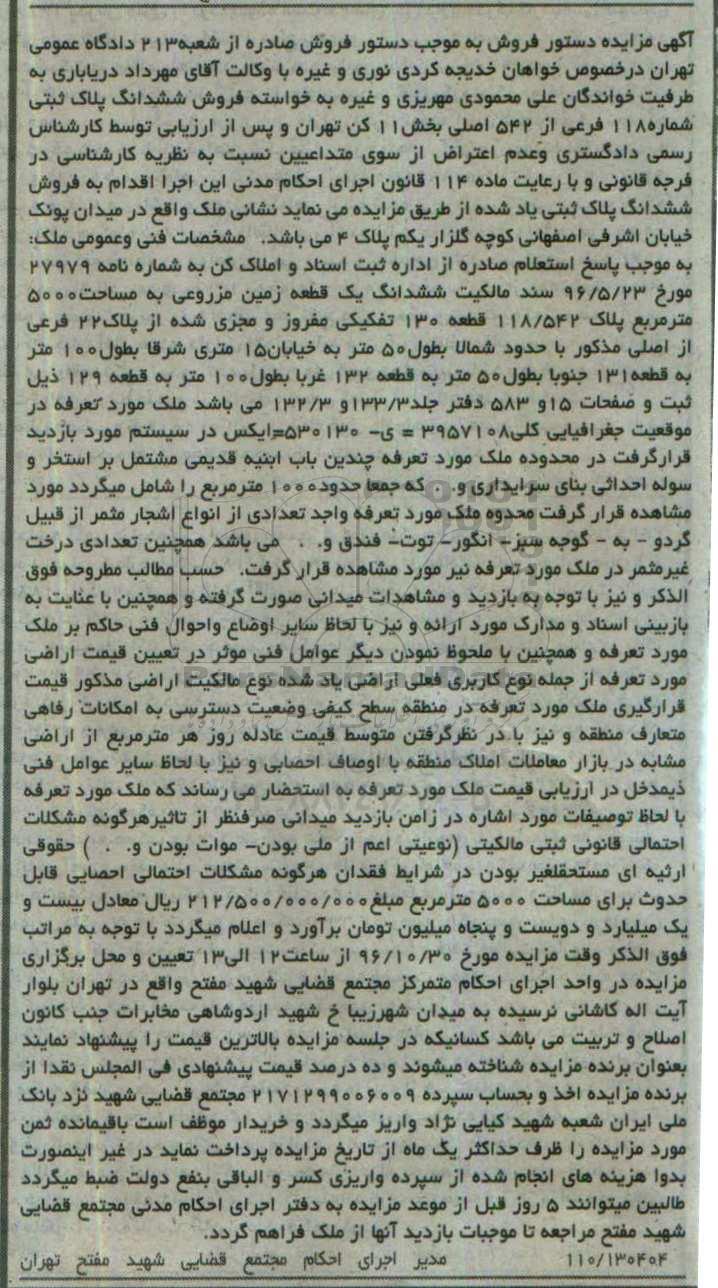 آگهی مزایده دستور فروش به موجب دستور فروش صادره از شعبه۲۱۳ دادگاه عمومی
تهران درخصوص خواهان خدیجه کردی نوری و غیره با وکالت آقای مهرداد دریاباری به
طرفیت خواندگان علی محمودی مهریزی و غیره به خواسته فروش ششدانگ پلاک ثبتی
شماره۱۱۸ فرعی از ۵۴۲ اصلی بخش۱۱ کن تهران و پس از ارزیابی توسط کارشناس
رسمی دادگستری وعدم اعتراض از سوی متداعیین نسبت به نظریه کارشناسی در
فرجه قانونی و با رعایت ماده ۱۱۴ قانون اجرای احکام مدنی این اجرا اقدام به فروش
ششدانگ پلاک ثبتی یاد شده از طریق مزایده می نماید نشانی ملک واقع در میدان پونک
خیابان اشرفی اصفهانی کوچه گلزار یکم پلاک ۴ می باشد. مشخصات فنی وعمومی ملک:
به موجب پاسخ استعلام صادره از اداره ثبت اسناد و املاک کن به شماره نامه ۲۷۹۷۹
مورخ ۹۶/۵/۲۳ سند مالکیت ششدانگ یک قطعه زمین مزروعی به مساحت۵۰۰۰
مترمربع پلاک ۱۱۸/۵۴۲ قطعه ۱۳۰ تفکیکی مفروز و مجزی شده از پلاک۲۲ فرعی
از اصلی مذکور با حدود شمالا بطول۵۰ متر به خیابان۱۵ متری شرقا بطول۱۰۰ متر
به قطعه۱۳۱ جنوبا بطول۵۰ متر به قطعه ۱۳۲ غربا بطول۱۰۰ متر به قطعه ۱۲۹ ذیل
ثبت و صفحات ۱۵و ۵۸۳ دفتر جلد۱۳۳/۳و ۱۳۲/۳ می باشد ملک مورد تعرفه در
موقعیت جغرافیایی کلی۳۹۵۷۱۰۸ = ی- ۵۳۰۱۳۰=ایکس در سیستم مورد بازدید
قرارگرفت در محدوده ملک مورد تعرفه چندین باب ابنیه قدیمی مشتمل بر استخر و
سوله احداثی بنای سرایداری و. . که جمعا حدود۱۰۰۰ مترمربع را شامل میگردد مورد
مشاهده قرار گرفت محدوه ملک مورد تعرفه واجد تعدادی از انواع اشجار مثمر از قبیل
گردو - به - گوجه سبز- انگور- توت- فندق و. . می باشد همچنین تعدادی درخت
غیرمثمر در ملک مورد تعرفه نیر مورد مشاهده قرار گرفت. حسب مطالب مطروحه فوق
الذکر و نیز با توجه به بازدید و مشاهدات میدانی صورت گرفته و همچنین با عنایت به
بازبینی اسناد و مدارک مورد ارائه و نیز با لحاظ سایر اوضاع واحوال فنی حاکم بر ملک
مورد تعرفه و همچنین با ملحوظ نمودن دیگر عوامل فنی موثر در تعیین قیمت اراضی
مورد تعرفه از جمله نوع کاربری فعلی اراضی یاد شده نوع مالکیت اراضی مذکور قیمت
قرارگیری ملک مورد تعرفه در منطقه سطح کیفی وضعیت دسترسی به امکانات رفاهی
متعارف منطقه و نیز با در نظرگرفتن متوسط قیمت عادله روز هر مترمربع از اراضی
مشابه در بازار معاملات املاک منطقه با اوصاف احصایی و نیز با لحاظ سایر عوامل فنی
ذیمدخل در ارزیابی قیمت ملک مورد تعرفه به استحضار می رساند که ملک مورد تعرفه
با لحاظ توصیفات مورد اشاره در زامن بازدید میدانی صرفنظر از تاثیرهرگونه مشکلات
احتمالی قانونی ثبتی مالکیتی (نوعیتی اعم از ملی بودن- موات بودن و. . ) حقوقی
ارثیه ای مستحقلغیر بودن در شرایط فقدان هرگونه مشکلات احتمالی احصایی قابل
حدوث برای مساحت ۵۰۰۰ مترمربع مبلغ۲۱۲/۵۰۰/۰۰۰/۰۰۰ ریال معادل بیست و
یک میلیارد و دویست و پنجاه میلیون تومان برآورد و اعلام میگردد با توجه به مراتب
فوق الذکر وقت مزایده مورخ ۹۶/۱۰/۳۰ از ساعت۱۲ الی۱۳ تعیین و محل برگزاری
مزایده در واحد اجرای احکام متمرکز مجتمع قضایی شهید مفتح واقع در تهران بلوار
آیت اله کاشانی نرسیده به میدان شهرزیبا خ شهید اردوشاهی مخابرات جنب کانون
اصلاح و تربیت می باشد کسانیکه در جلسه مزایده بالاترین قیمت را پیشنهاد نمایند
بعنوان برنده مزایده شناخته میشوند و ده درصد قیمت پیشنهادی فی المجلس نقدا از
برنده مزایده اخذ و بحساب سپرده ۲۱۷۱۲۹۹۰۰۶۰۰۹ مجتمع قضایی شهید نزد بانک
ملی ایران شعبه شهید کیایی نژاد واریز میگردد و خریدار موظف است باقیمانده ثمن
مورد مزایده را ظرف حداکثر یک ماه از تاریخ مزایده پرداخت نماید در غیر اینصورت
بدوا هزینه های انجام شده از سپرده واریزی کسر و الباقی بنفع دولت ضبط میگردد
طالبین میتوانند ۵ روز قبل از موعد مزایده به دفتر اجرای احکام مدنی مجتمع قضایی
شهید مفتح مراجعه تا موجبات بازدید آنها از ملک فراهم گردد.
۱۱۰/۱۳۰۴۰۴ مدیر اجرای احکام مجتمع قضایی شهید مفتح تهران